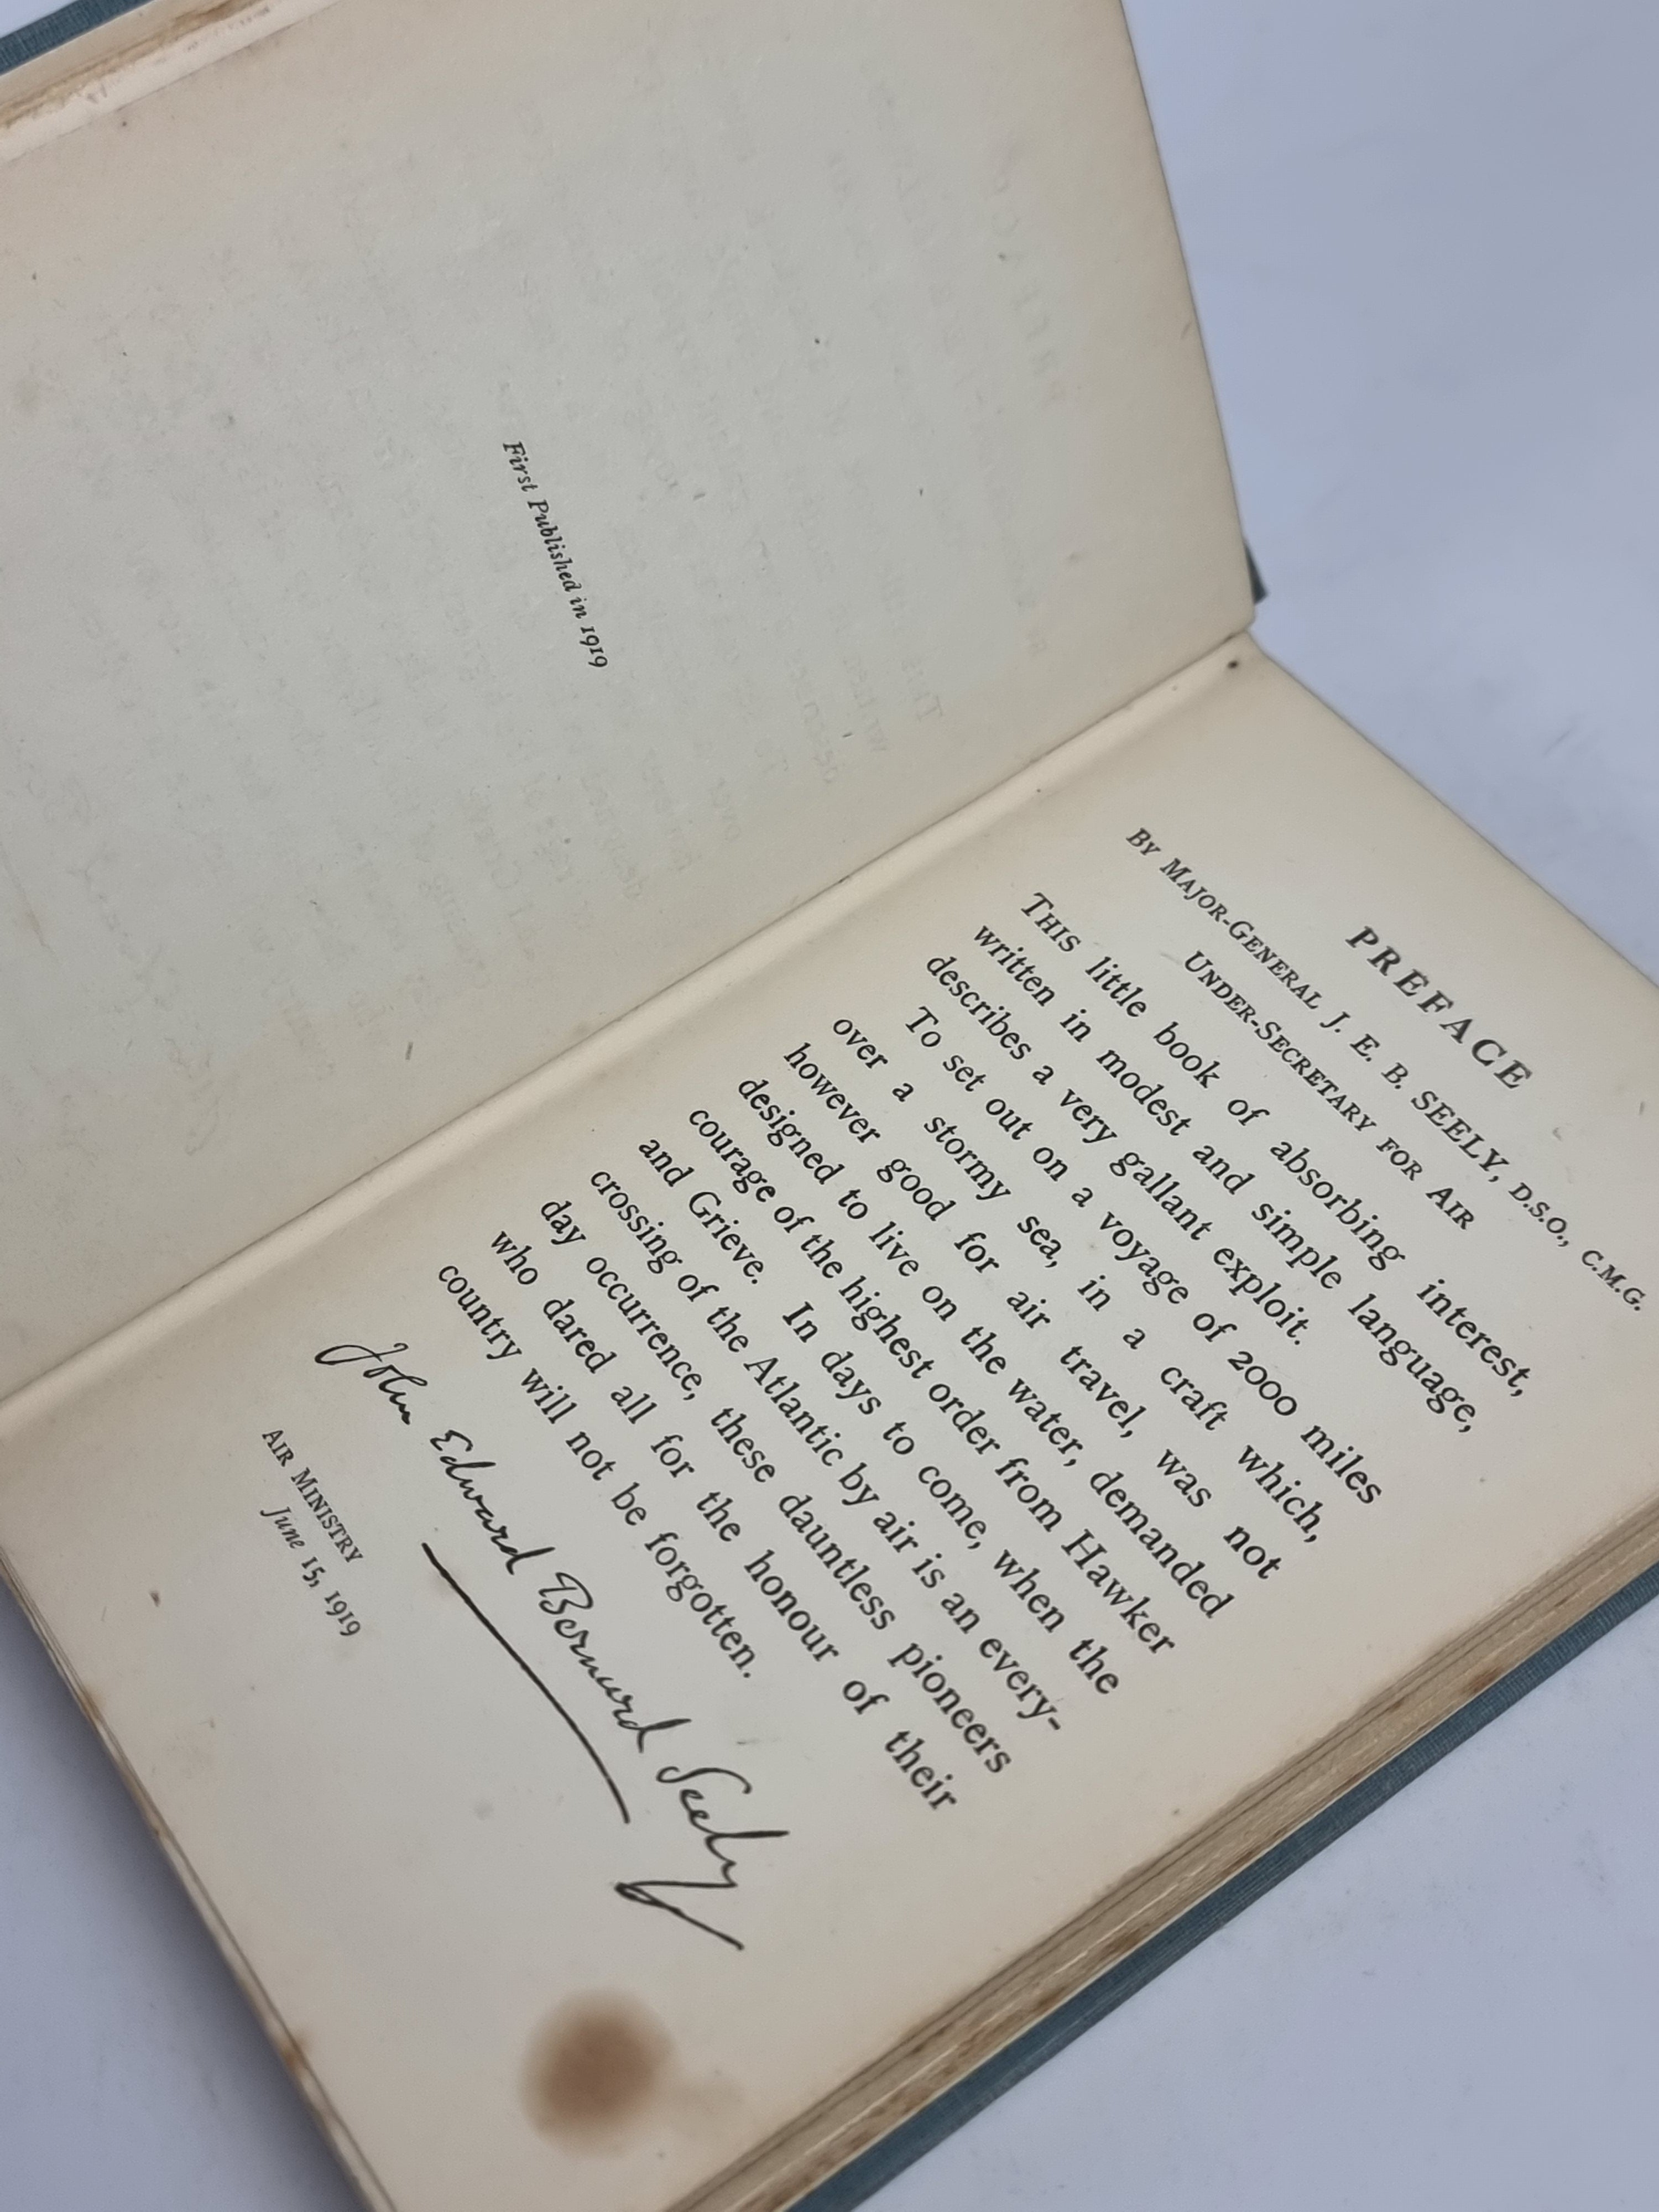 First Published in 1919
PREFACE
By Major-General J. E. B. SEELY, D.S.O., C.M.G.
Under-Secretary for Air
This little book of absorbing interest,
written in modest and simple language,
describes a very gallant exploit.
To set out on a voyage of 2000 miles
over a stormy sea, in a craft which,
however good for air travel, was not
designed to live on the water, demanded
courage of the highest order from Hawker
and Grieve. In days to come, when the
crossing of the Atlantic by air is an every-
day occurrence, these dauntless pioneers
who dared all for the honour of their
country will not be forgotten.
John Edward Bernard Seely
Air Ministry
June 15, 1919